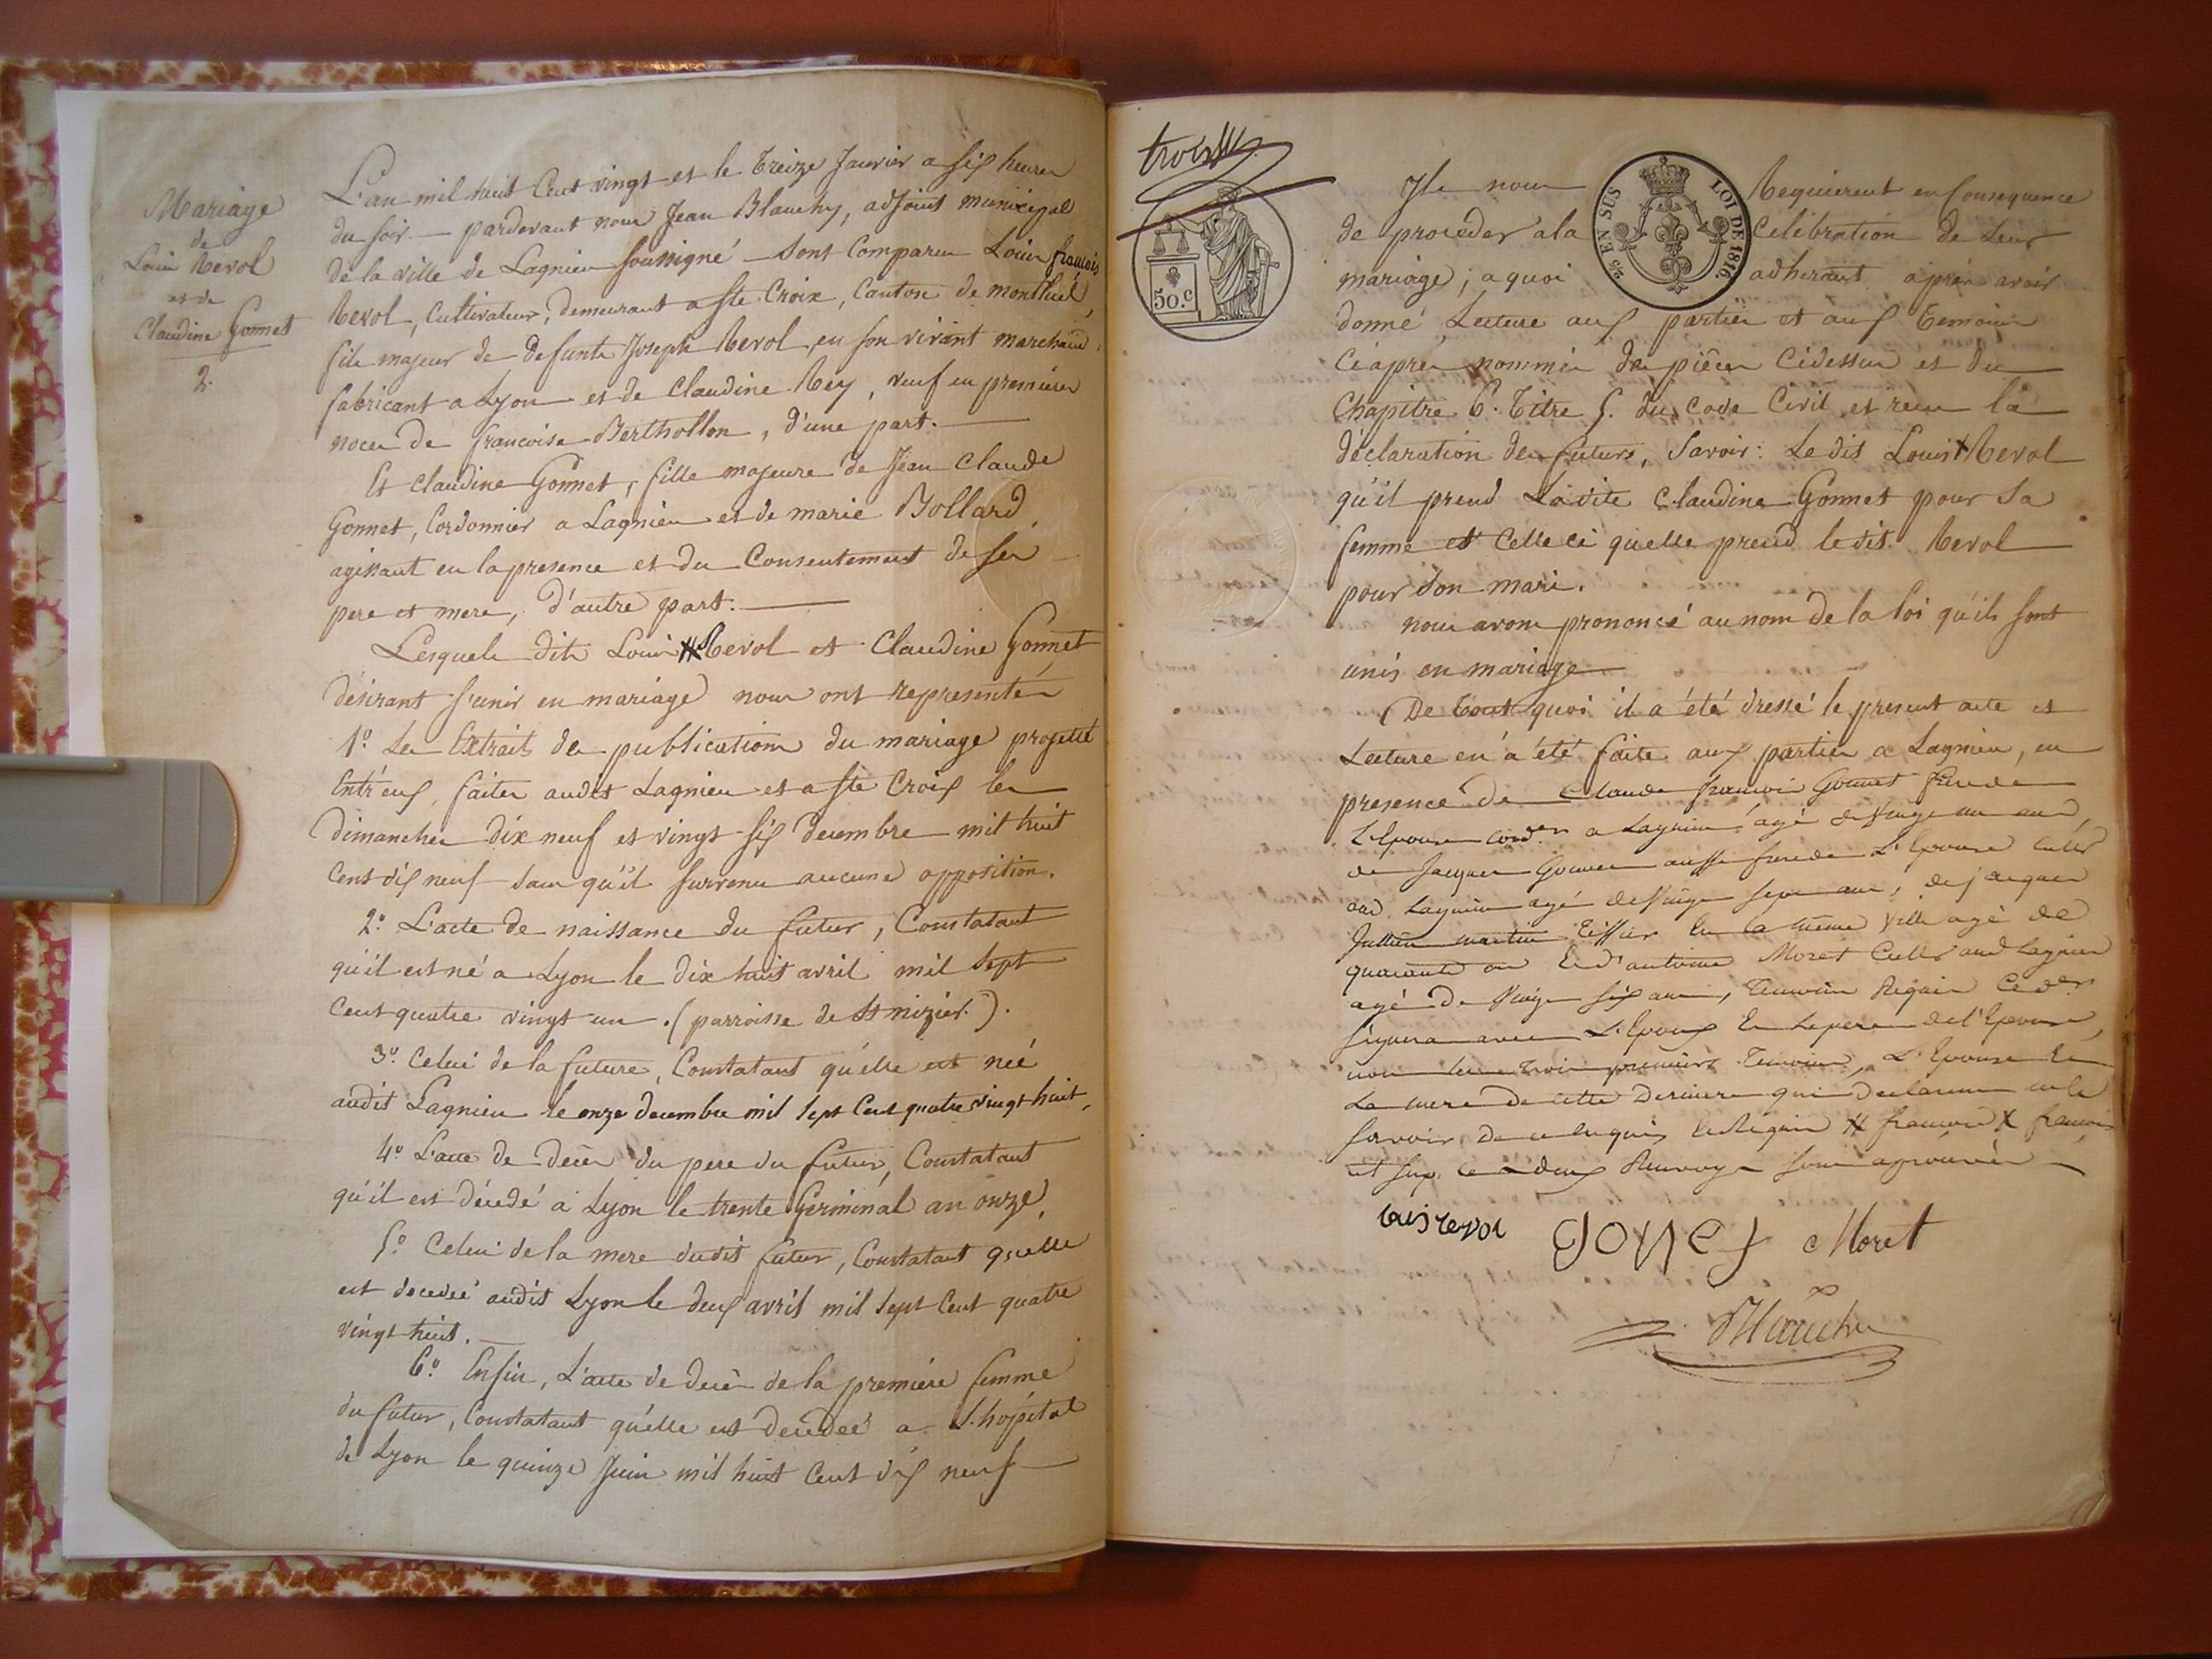 Mariage
de
Louis Revol
et de
Claudine Gonnet
2.
L'an mil huit Cent vingt et le treize Janvier a six heures
du soir. — pardevant nous Jean Blanchy, adjoint municipal
de la ville de Lagnieu soussigné — sont Comparus Louis françois
Revol, Cultivateur, demeurant a Ste Croix, Canton de montluel,
fils majeur de defunts Joseph Revol, en son vivant marchand
fabricant a Lyon et de Claudine Rey, veuf en premieres
noces de francoise Berthollon, d'une part. —
Et Claudine Gonnet, fille majeure de Jean Claude
Gonnet, Cordonnier a Lagnieu et de marie Bollard,
agissant en la presence et du Consentement de ses
pere et mere, d'autre part. —
Lesquels dits Louis # Revol et Claudine Gonnet
désirant s'unir en mariage nous ont représentés
1º. Les Extraits des publications du mariage projetté
Entr'eux, faites audit Lagnieu et a Ste Croix les
dimanches dix neuf et vingt six decembre mil huit
Cent dix neuf sans qu'il survenu aucune opposition.
2º. L'acte de naissance du futur, Constatant
qu'il est né a Lyon le dix huit avril mil sept
Cent quatre vingt un. (parroisse de St nizier.).
3º. Celui de la future, Constatant qu'elle est née
audit Lagnieu le onze decembre mil sept Cent quatre vingt huit,
4º L'acte de décès du pere du futur, Constatant
qu'il est décédé a Lyon le trente Germinal an onze,
5º. Celui de la mere dudit futur, Constatant qu'elle
est decedée audit Lyon le deux avril mil sept Cent quatre
vingt huit. —
6º. Enfin, L'acte de décès de la premiere femme
du futur, Constatant qu'elle est decedeé a L'hôpital
de Lyon le quinze Juin mil huit Cent dix neuf —
trois
50.C
2/5 EN SUS
LOI DE 1816.
Ils nous Requierent en Consequence
de proceder a la Celébration de Leur
mariage; a quoi adhérant après avoir
donné Lecture aux parties et aux temoins
Ciaprès nommés des pièces Cidessus et du
Chapitre 6. Titre 5. du Code Civil et recu la
déclaration des futurs, Savoir: Le dit Louis X Revol
qu'il prend Ladite Claudine Gonnet pour Sa
femme et Celle ci qu'elle prend ledit Revol
pour Son mari.
nous avons prononcé au nom de la loi qu'ils sont
unis en mariage —
De tout quoi il a été dressé le present acte et
Lecture en a été faite aux parties a Lagnieu, en
presence de Claude francois Gonnet frere de
L'Epouse cord.er a Lagnieu agé de vingt un ans,
de Jacques Gonnet aussi frere de L'Epouse cult.r
aud Lagnieu agé de vingt sept ans, de jacques
Jullien martin tissier en la même ville agé de
quarante ans Et d'antoine Moret Cult.r aud Lagnieu
agé de vingt six ans, temoins Requis Ce d.er
signera avec L'Epoux Et le pere de l'Epouse,
non les trois premiers temoins, L'Epouse Et
La mere de cette derniere qui declarent ne le
savoir de ce enquis et Requis # francois X francois
Les deux Renvoys sont aprouvés
louis revol gonet Moret
Blanchy